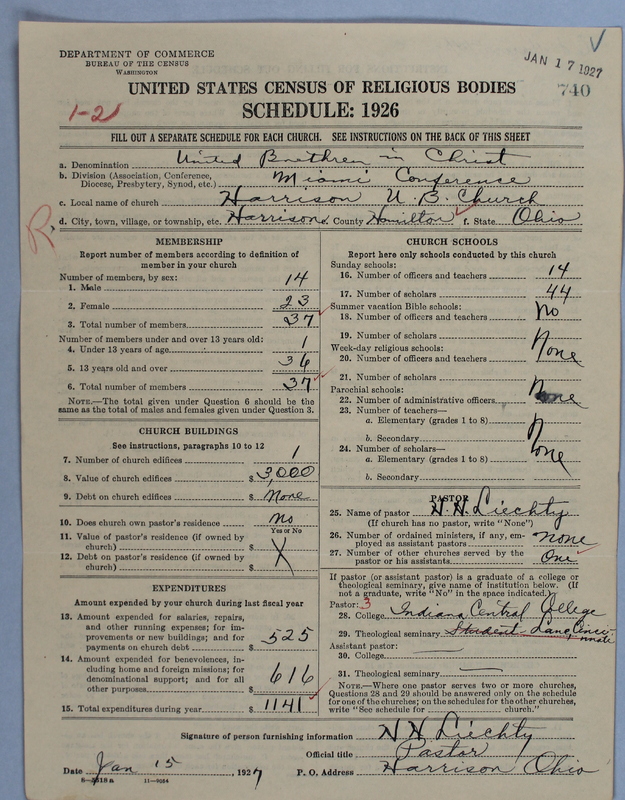 DEPARTMENT OF COMMERCE
BUREAU OF THE CENSUS
WASHINGTON
JAN 17 1927
740
UNITED STATES CENSUS OF RELIGIOUS BODIES
SCHEDULE: 1926
1-2
FILL OUT A SEPARATE SCHEDULE FOR EACH CHURCH. SEE INSTRUCTIONS ON THE BACK OF THIS SHEET
a. Denomination United Brethren in Christ
b. Division (Association, Conference, Diocese, Presbytery, Synod, etc.) Miami Conference
c. Local name of church Harrison U. B. Church
d. City, town, village, or township, etc. Harrison e. County Hamilton f. State Ohio
R,
MEMBERSHIP
Report number of members according to definition of
member in your church
Number of members, by sex:
1. Male 14
2. Female 23
3. Total number of members 37
Number of members under and over 13 years old:
4. Under 13 years of age 1
5. 13 years old and over 36
6. Total number of members 37
NOTE.—The total given under Question 6 should be
same as the total of males and females given under Question 3.
CHURCH BUILDINGS
See instructions, paragraphs 10 to 12
7. Number of church edifices 1
8. Value of church edifices $ 3,000
9. Debt on church edifices $ None
10. Does church own pastor's residence No
Yes or No
11. Value of pastor's residence (if owned by
church) $ X
12. Debt on pastor's residence (if owned by
church) $
EXPENDITURES
Amount expended by your church during last fiscal year
13. Amount expended for salaries, repairs,
and other running expenses; for im-
provements or new buildings; and for
payments on church debt $ 525
14. Amount expended for benevolences, in-
cluding home and foreign missions; for
denominational support; and for all
other purposes $ 616
15. Total expenditures during year $ 1141
CHURCH SCHOOLS
Report here only schools conducted by this church
Sunday schools:
16. Number of officers and teachers 14
17. Number of scholars 44
Summer vacation Bible schools:
18. Number of officers and teachers No
19. Number of scholars
Week-day religious schools: None
20. Number of officers and teachers
21. Number of scholars
Parochial schools:
22. Number of administrative officers None
23. Number of teachers—
a. Elementary (grades 1 to 8)
b. Secondary
24. Number of scholars— None
a. Elementary (grades 1 to 8)
b. Secondary
PASTOR
25. Name of pastor N. H. Liechty
(If church has no pastor, write "None")
26. Number of ordained ministers, if any, em-
ployed as assistant pastors None
27. Number of other churches served by the
pastor or his assistants One
If pastor (or assistant pastor) is a graduate of a college or
theological seminary, give name of institution below. (If
not a graduate, write "No" in the space indicated.)
Pastor: 3
28. College Indiana Central College
29. Theological seminary Student - Lane, Cincinnati
Assistant pastor:
30. College —
31. Theological seminary —
NOTE.—Where one pastor serves two or more churches,
Questions 28 and 29 should be answered only on the schedule
for one of the churches; on the schedules for the other churches,
write "See schedule for church."
Signature of person furnishing information N H Liechty
Official title Pastor
Date Jan 15, 1927 P. O. Address Harrison Ohio
11-9024